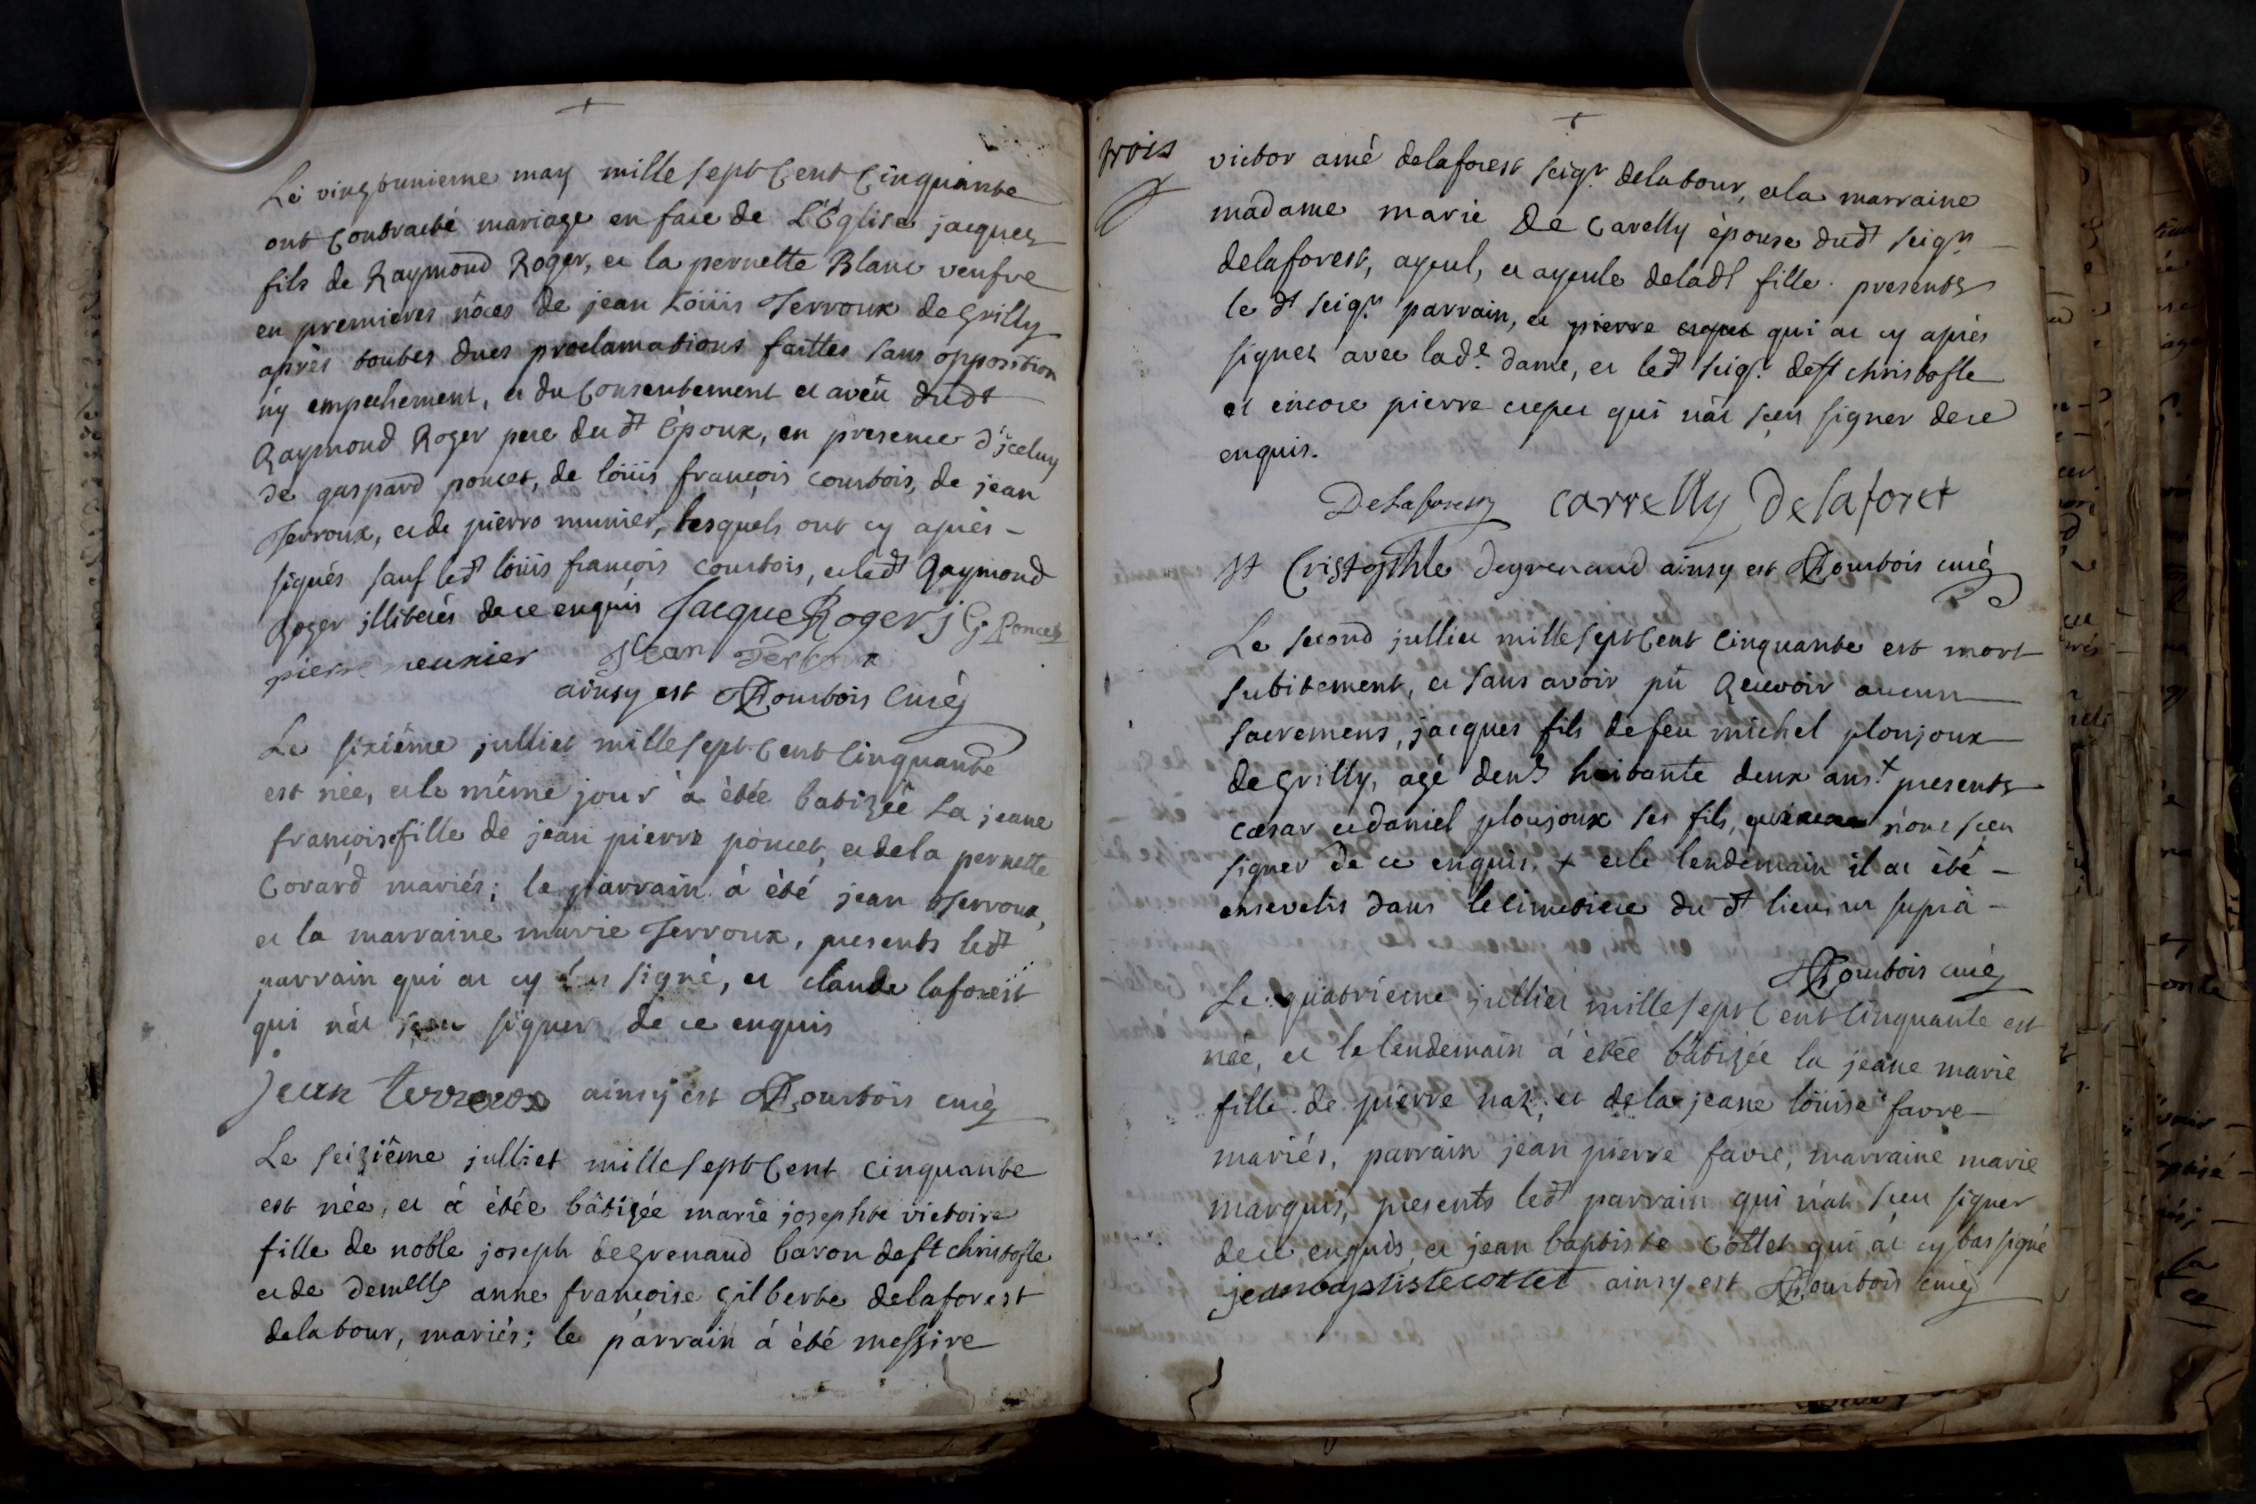 Le vingtunieme may mille sept Cent Cinquante
ont Contracté mariage en face de L'Eglise jacques
fils de Raymond Roger, et la pernette Blanc veufve
en premieres nôces de jean Loüis Terroux de Grilly
après toutes dues proclamations faittes sans opposition
ny empechement, et du Consentement et aveû dudt
Raymond Roger pere du dt Epoux, en presence d'jceluy
de gaspard poncet, de loüis françois courtois, de jean
Terroux, et de pierre munier, lesquels ont cy après
signés sauf ledt loüis françois courtois, et ledt Raymond
Roger jlliterés de ce enquis Jacque Roger j G Poncet
pierre meunier Jean Terroux
ainsy est Courtois Curé
Le sixiême julliet mille sept Cent Cinquante
est née, et le même jour à êtée batizée La jeane
françoise fille de jean pierre poncet, et de la pernette
Covard mariés; le parrain à êté jean Terroux,
et la marraine marie Terroux, presents ledt
parrain qui at cy bas signé, et claude laforest
qui n'at sçeu signer de ce enquis
jean terroux ainsy est Courtois curé
Le seiziême julliet mille sept Cent cinquante
est née, et à êtée bâtizée marie josephte victoire
fille de noble joseph deGrenaud baron de st christofle
et de demelle anne françoise gilberte delaforest
delatour, mariés; le parrain à êté messire
trois
victor amé delaforest seigr. delatour, et la marraine
madame marie De Carelly épouse dudt seigr
delaforest, ayeul, et ayeule deladt fille. presents
le dt seigr parrain, et pierre crepet qui at cy après
signet avec lade. dame, et ledt seigr. de st christofle
et encore pierre crepet qui n'at sçeu signer de ce
enquis.
Delaforest carrelly Delaforet
st Cristophle degrenaud ainsy est Courtois curé
Le second julliet mille sept Cent Cinquante est mort
subitement, et sans avoir pû Recevoir aucun
sacremens, jacques fils de feu michel plonjoux
de Grilly, agé denv huitante deux ans. + presents
cæsar et daniel plonjoux ses fils, n'ont sçeu
signer de ce enquis. + et le lendemain il at êté
ensevelis dans le cimetiere du dt lieu, ut suprà
Courtois curé
Le quatrieme julliet mille sept Cent Cinquante est
née, et le lendemain à êtée bâtizée la jeane marie
fille de pierre naz, et de la jeane loüise favre
mariés, parrain jean pierre favre, marraine marie
marquis, presents ledt parrain qui n'at sceu signer
de ce enquis et jean baptiste Cottet qui at cy bas signé
jeanbaptistecottet ainsy est Courtois curé